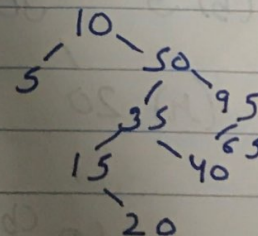 10
5 50
35 95
15 40 65
20